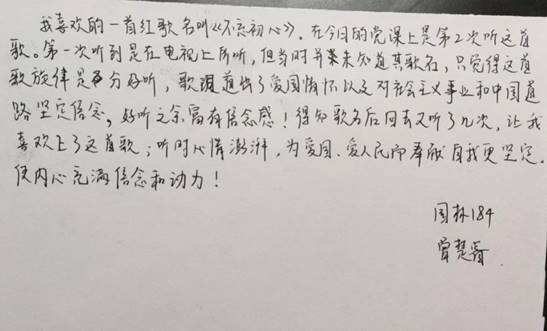 我喜欢的一首红歌名叫《不忘初心》。在今日的党课上是第2次听这首
歌。第一次听到是在电视上所听，但当时并未知道其歌名，只觉得这首
歌旋律是十分好听，歌词道出了爱国情怀以及对社会主义事业和中国道
路坚定信念，好听之余富有信念感！得知歌名后回去又听了几次，让我
喜欢上了这首歌；听时心情澎湃，为爱国、爱人民而奉献自我更坚定，
使内心充满信念和动力！
园林184
曾楚